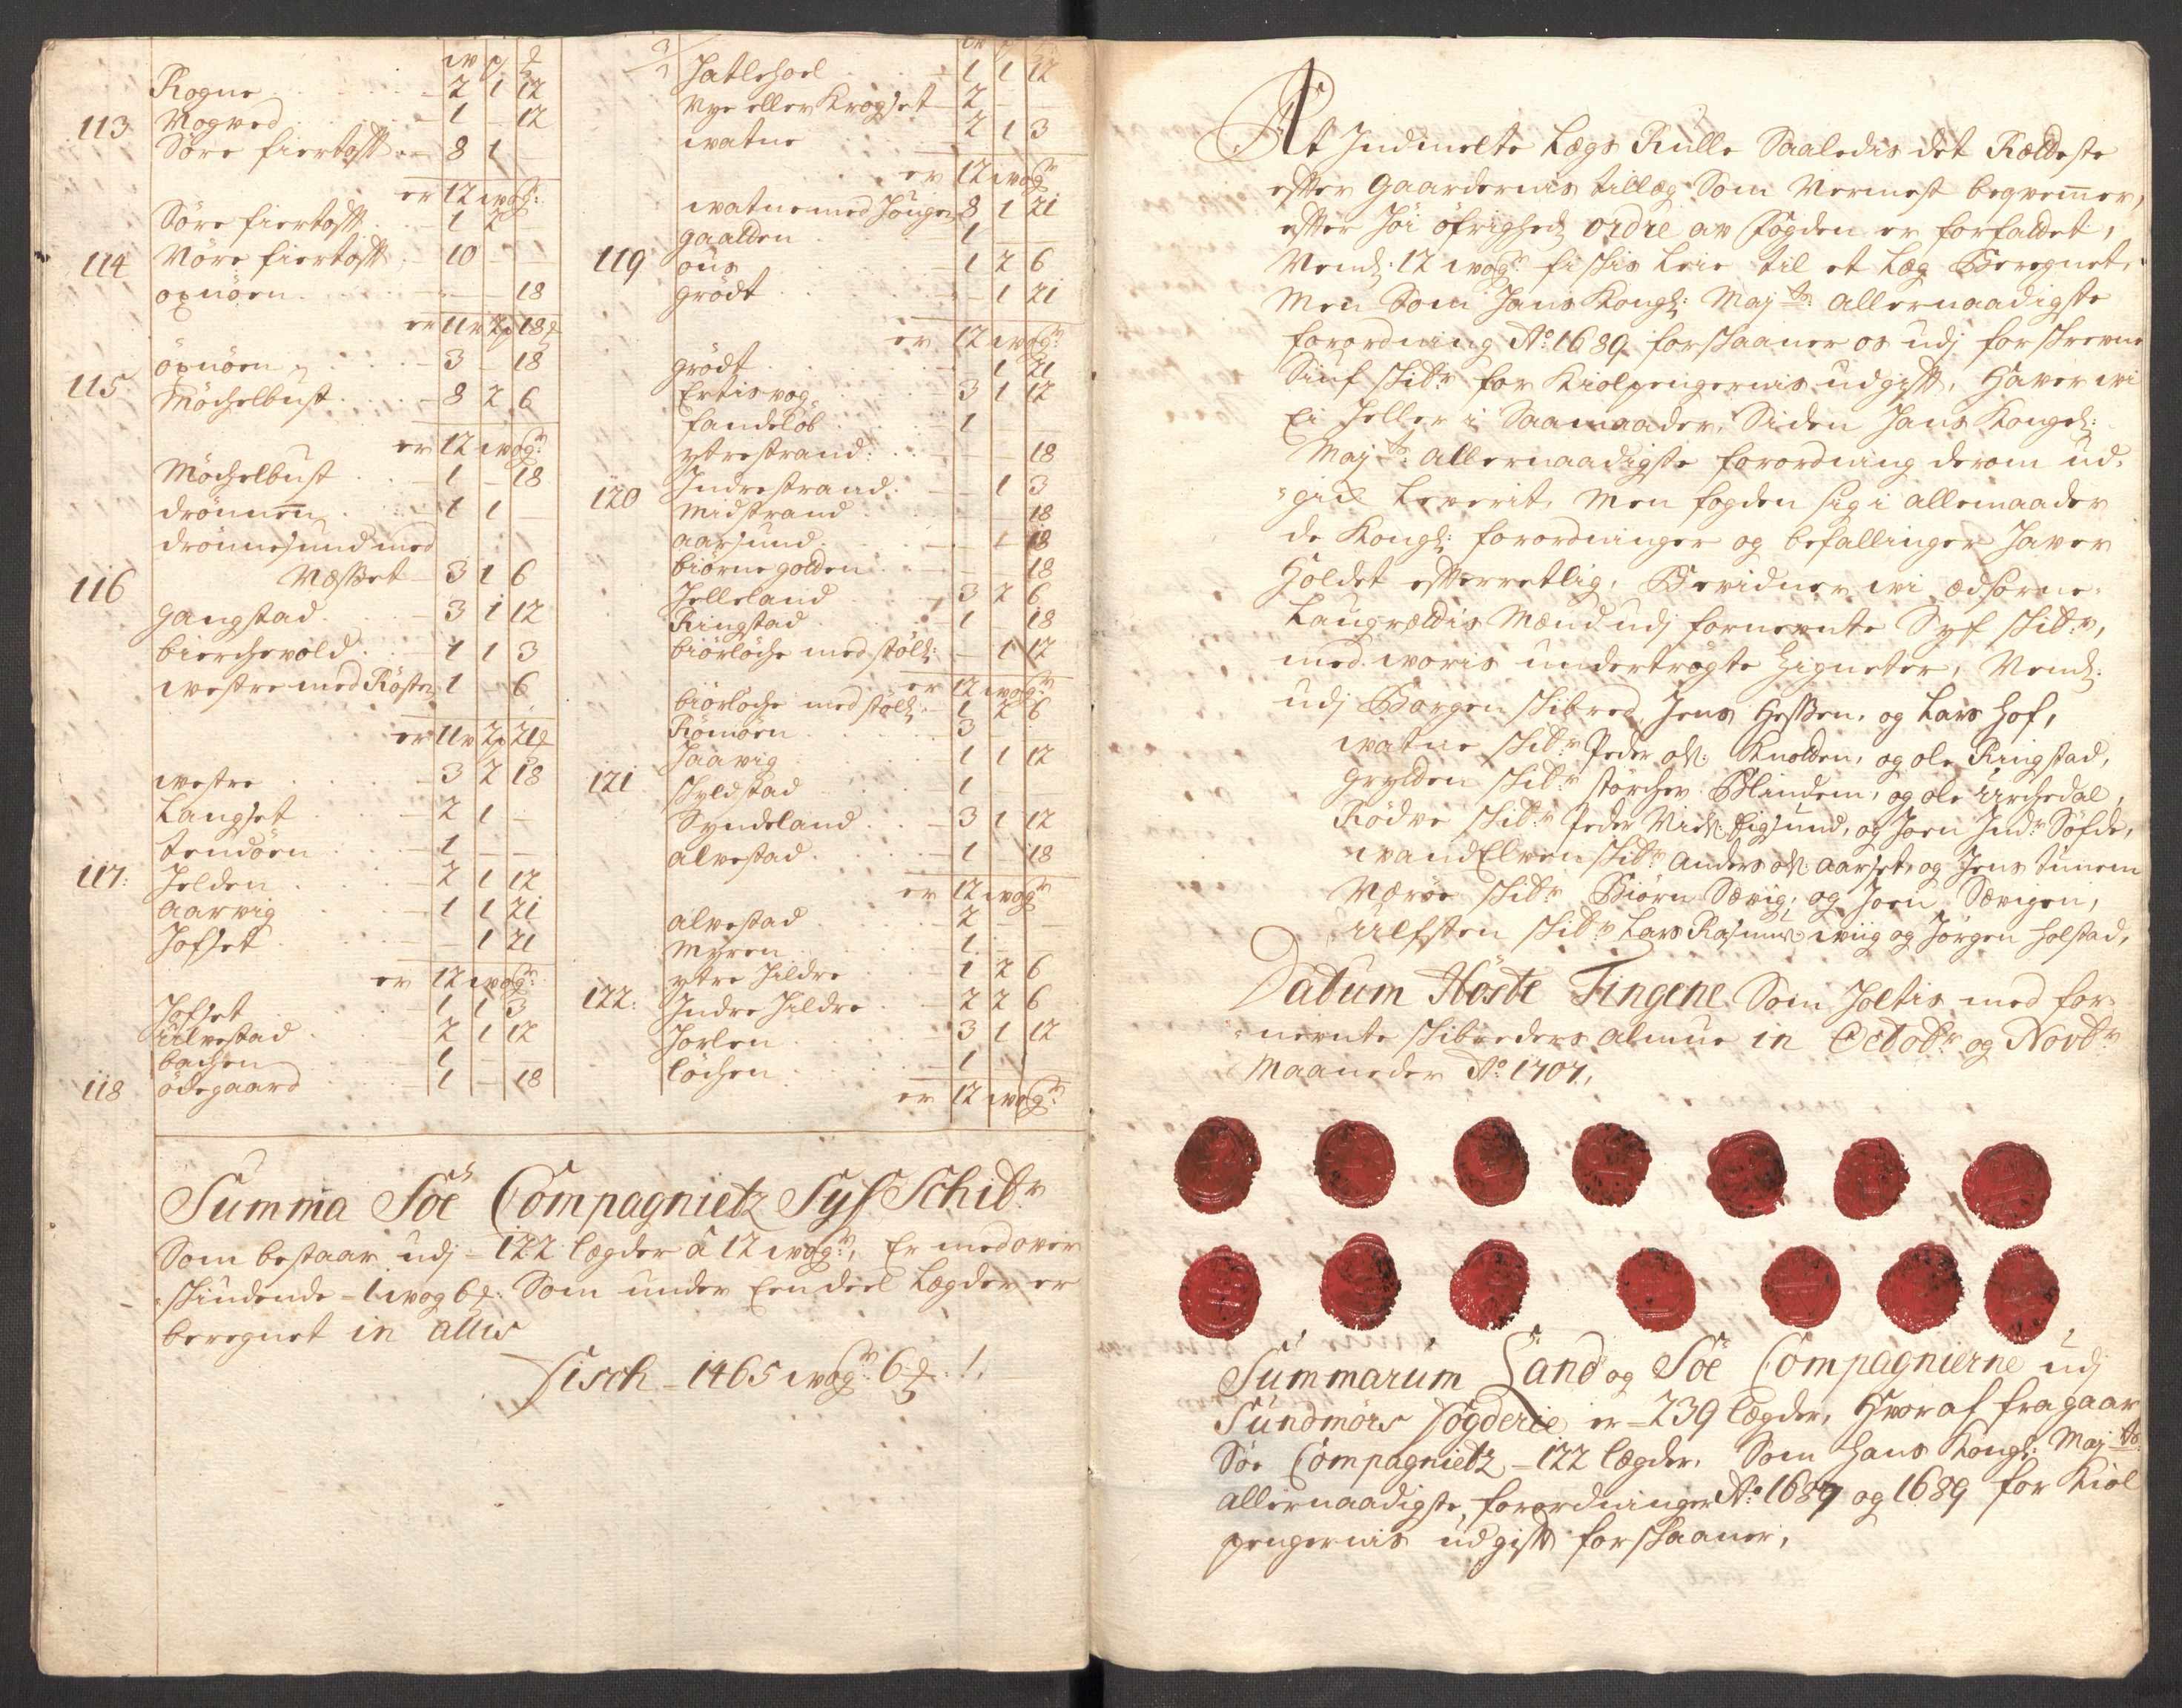 w p ₰
Rogne 2 1 12
113 Rogned 1 – 12
Söre fiertoft 8 1 –
er 12 wog:
Söre fiertoft 1 2 –
114 Nöre fiertoft 10 – –
oxnöen – – 18
er 11 w 2 p 18 ₰
öxnöen 3 – 18
115 Möchelbust 8 2 6
er 12 wogr
Möchelbust 1 – 18
drönnen 1 1 –
drönnesund med
116 Næsset 3 1 6
gangstad 3 1 12
bierchevold 1 1 3
westre med Röste 1 – 6
er 11 w 2 p 21 ₰
westre 3 2 18
Langset 2 1 –
tendöen 1 – –
117: Helden 2 1 12
aarvig 1 1 21
Hofset – 1 21
er 12 wog:
Hofset 1 1 3
ulvestad 2 1 12
bachen 1 – –
118 ödegaard 1 – 18
Hatlehoel 1 1 12
Nye eller Krogset 2 – –
watne 2 1 3
er 12 wogr
watne med Houger 8 1 21
gaalden 1 – –
119 ous 1 2 6
grödt – 1 21
er 12 wog:
grödt – 1 21
Ertisvog 3 1 12
fandelöb 1 – –
ytrestrand – – 18
120 Indrestrand – 1 3
midstrand – – 18
aarsund – – 18
biörnegolden – – 18
Helleland 3 2 6
Ringstad 1 – 18
biörlöche med stölh: – 1 12
er 12 wogr
biörlöche med stölh: 1 2 6
Römöen 3
Haavig 1 1 12
121 skyldstad 1 –
Syndeland 3 1 12
alvestad 1 – 18
er 12 wogr
alvestad 2 – –
myren 1 –
ytre Hildre 1 2 6
122: Indre Hildre 2 2 6
Horlen 3 1 12
löchen 1
er 12 wogr
Summa Söe Compagnietz Syf Schibr
Som bestaar udj – 122 lægder â 12 wogr, Er med over
skiudende – 1 wog 6 ₰: Som under Eendeel Lægder er
beregnet in allis
Fisch – 1465 wogr 6 ₰ !.
At Indmelte Lægs Rulle Saaledis det Rældeste
efter Gaardernis tillæg Som Nermest beqvemer,
efter Höi öfrighed ordre av fogden er forfattet,
Nemb: 12 wogr fiskis Leie til et Læg Beregnet,
Men Som Hans Kongl: Mayts: allernaadigste
forordning Ao: 1689 forskaaner os udj forskrevne
Siuf skibr for Kiolpengernis udgift, Haver wi
Ei heller i Saamaader, Siden Hans Kongel:
Mayts: allernaadigste forordning derom ud-
gich Leverit, Men fogden sig i allemaader
de Kongl: forordninger og befallinger Haver
Holdet efterretlig, Bevidner wi ædsorne
Laugrættis Mænd udj fornevnte Syf skibr,
med woris undertrögte Zigneter, Nemb:
udj Borgen skibred, Jens Hessen, og Lars Hof,
watne skibr Peder ols: Knolden, og ole Ringstad,
Grytten skibr störcher Blindem, og ole Urchedal,
Rödve skibr Peder Niels: Eigsund, og Joen Indr Söfde,
wandElven skibr Anders ols: Aarset, og Jens tunem
Værøe skibr Biörn Sævig, og Joen Sævigen,
Ulfsten skibr Lars Rasmus: wiig og Jörgen Holstad,
Datum Höste Tingene Som Holtis med for-
nevnte skibreders almue in Octobr og Novbr
Maaneder Ao: 1707,
Summarum Land og Söe Compagnierne udj
Sundmörs Fögderie er – 239 lægder, Hvoraf fragaar
Söe Compagnietz – 122 lægder, Som Hans Kongl: Mayts:
allernaadigste, forordninger Ao: 1687 og 1689 for Kiol
pengernis udgift forskaaner,